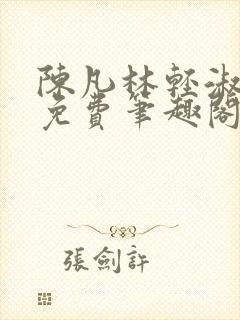 陳凡林輕淑
免費筆趣閣
張劍許